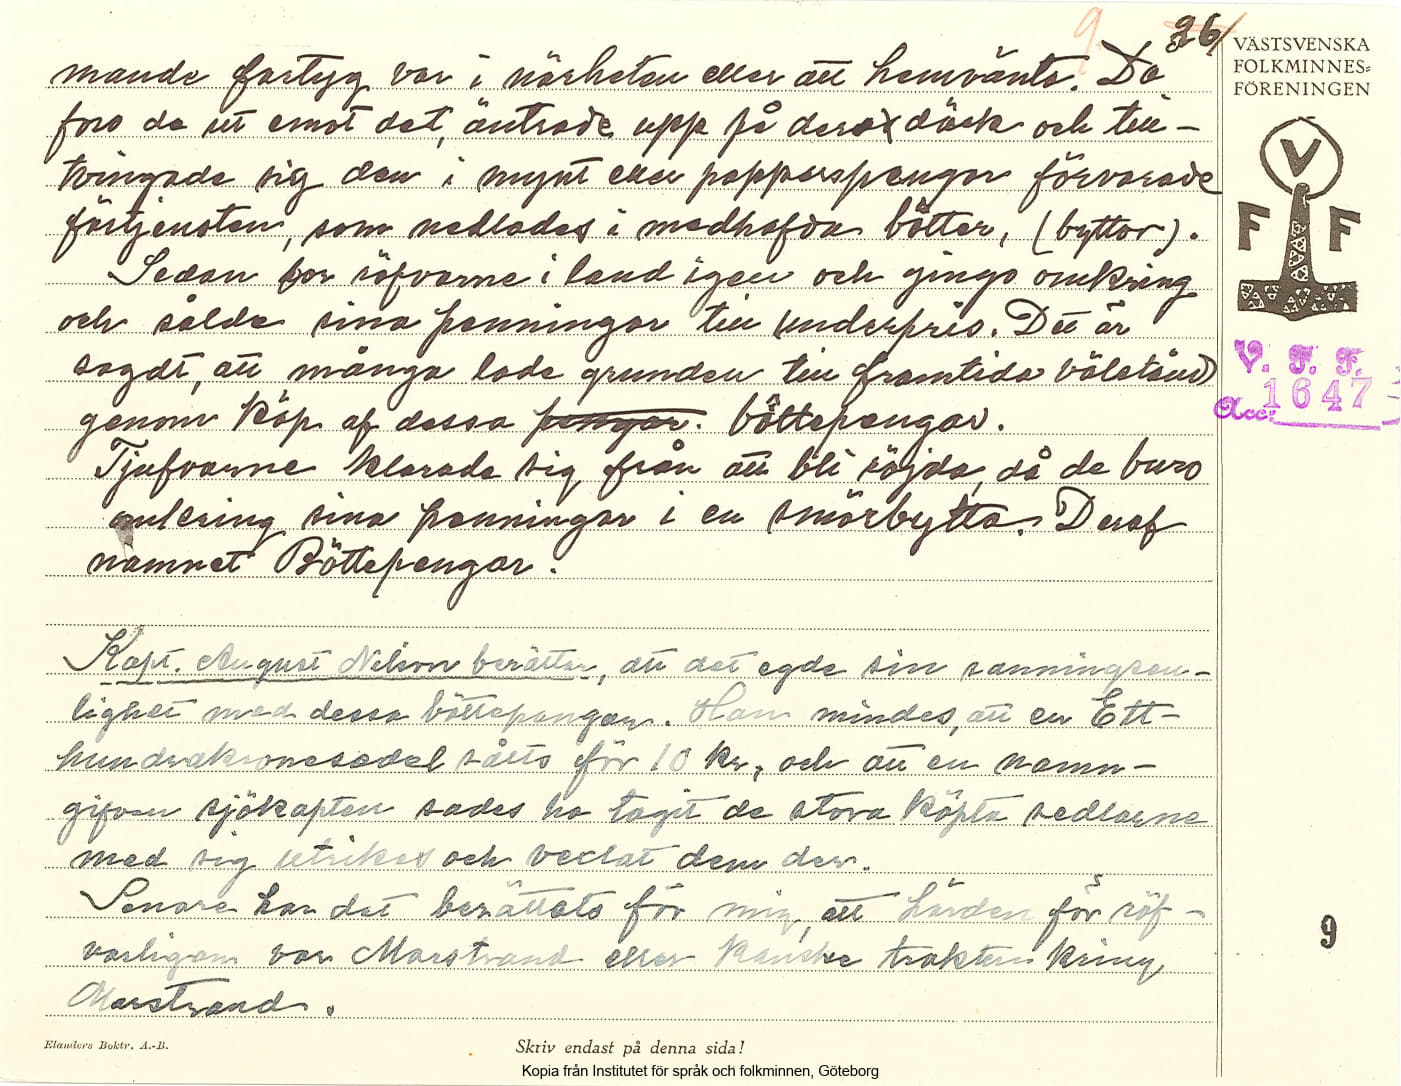 9.
26/
mande fartyg var i närheten eller att hemvänta. Då
foro de ut emot det, äntrade upp på deras däck och till-
tvingade sig den i mynt eller papperspengar förvarade
förtjensten, som nedlades i medhafda bötter, (byttor).
Sedan for röfvarne i land igen och gingo omkring
och sålde sina penningar till underpris. Det är
sagdt, att många lade grunden till framtida välstånd
genom köp af dessa pengar. böttepengar.
Tjufvarne klarade sig från att bli röjda, då de buro
omkring sina penningar i en smörbytta. Deraf
namnet Böttepengar.
Kapt. August Nilson berätter, att det egde sin sanningsen-
lighet med dessa böttepengar. Han mindes, att en Ett-
hundrakronesedel sålts för 10 kr, och att en namn-
gifven sjökapten sades ha tagit de stora köpta sedlarne
med sig utrikes och vexlat dem der.
Senare har det berättats för mig, att härden för röf-
varligan var Marstrand eller kanske trakten kring
Marstrand.
VÄSTSVENSKA
FOLKMINNES=
FÖRENINGEN
V
F F
V. F. F.
Acc: 1647
9
Elanders Boktr. A.-B.
Skriv endast på denna sida!
Kopia från Institutet för språk och folkminnen, Göteborg